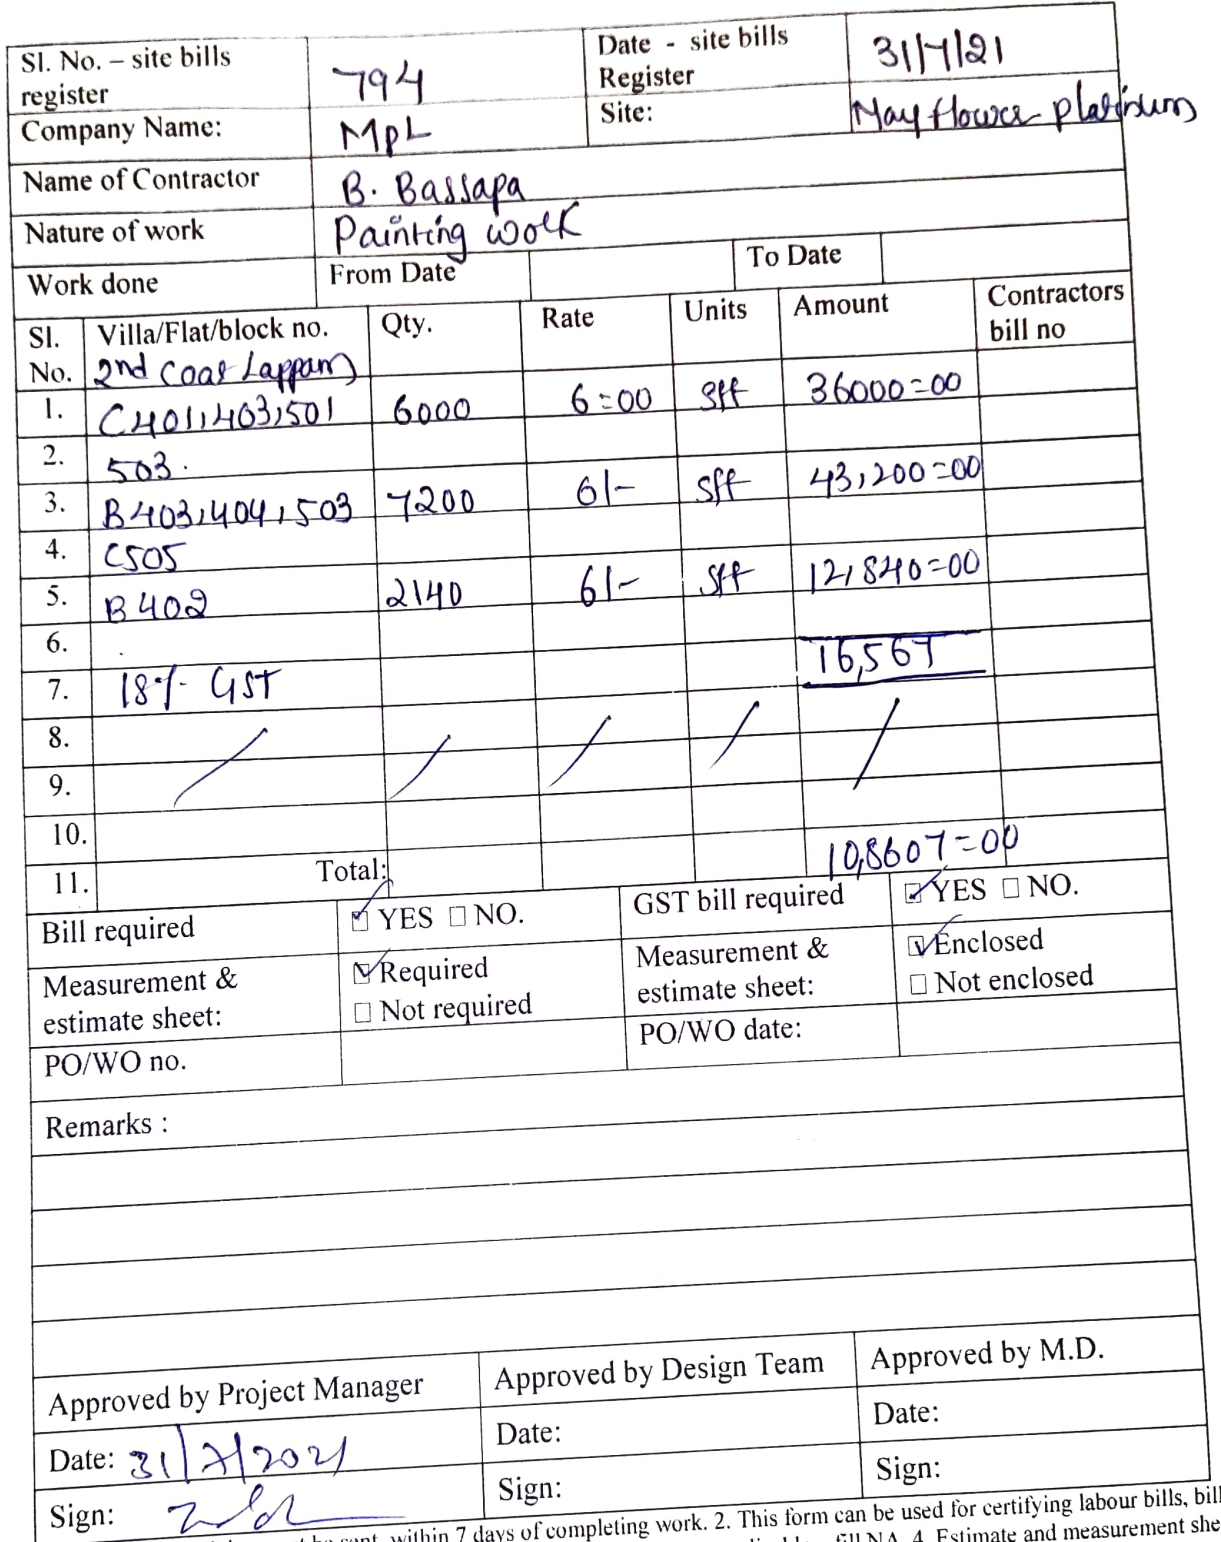 Sl. No. – site bills register 794 Date - site bills Register 31/7/21
Company Name: MPL Site: Mayflower Platinum
Name of Contractor B. Bassapa
Nature of work Painting work
Work done From Date To Date
Sl. No. Villa/Flat/block no. Qty. Rate Units Amount Contractors bill no
2nd coat Lappam
1. C401,403,501 6000 6=00 sft 36000=00
2. 503.
3. B403,404,503 7200 6/- sft 43,200=00
4. C505
5. B402 2140 6/- sft 12,840=00
6.
7. 18% GST 16,567
8.
9.
10.
11. Total: 10,8607=00
Bill required YES NO. GST bill required YES NO.
Measurement & estimate sheet: Required Not required Measurement & estimate sheet: Enclosed Not enclosed
PO/WO no. PO/WO date:
Remarks :
Approved by Project Manager Approved by Design Team Approved by M.D.
Date: 31/7/2021 Date: Date:
Sign: Sign: Sign:
within 7 days of completing work. 2. This form can be used for certifying labour bills, bill
fill NA. 4. Estimate and measurement she